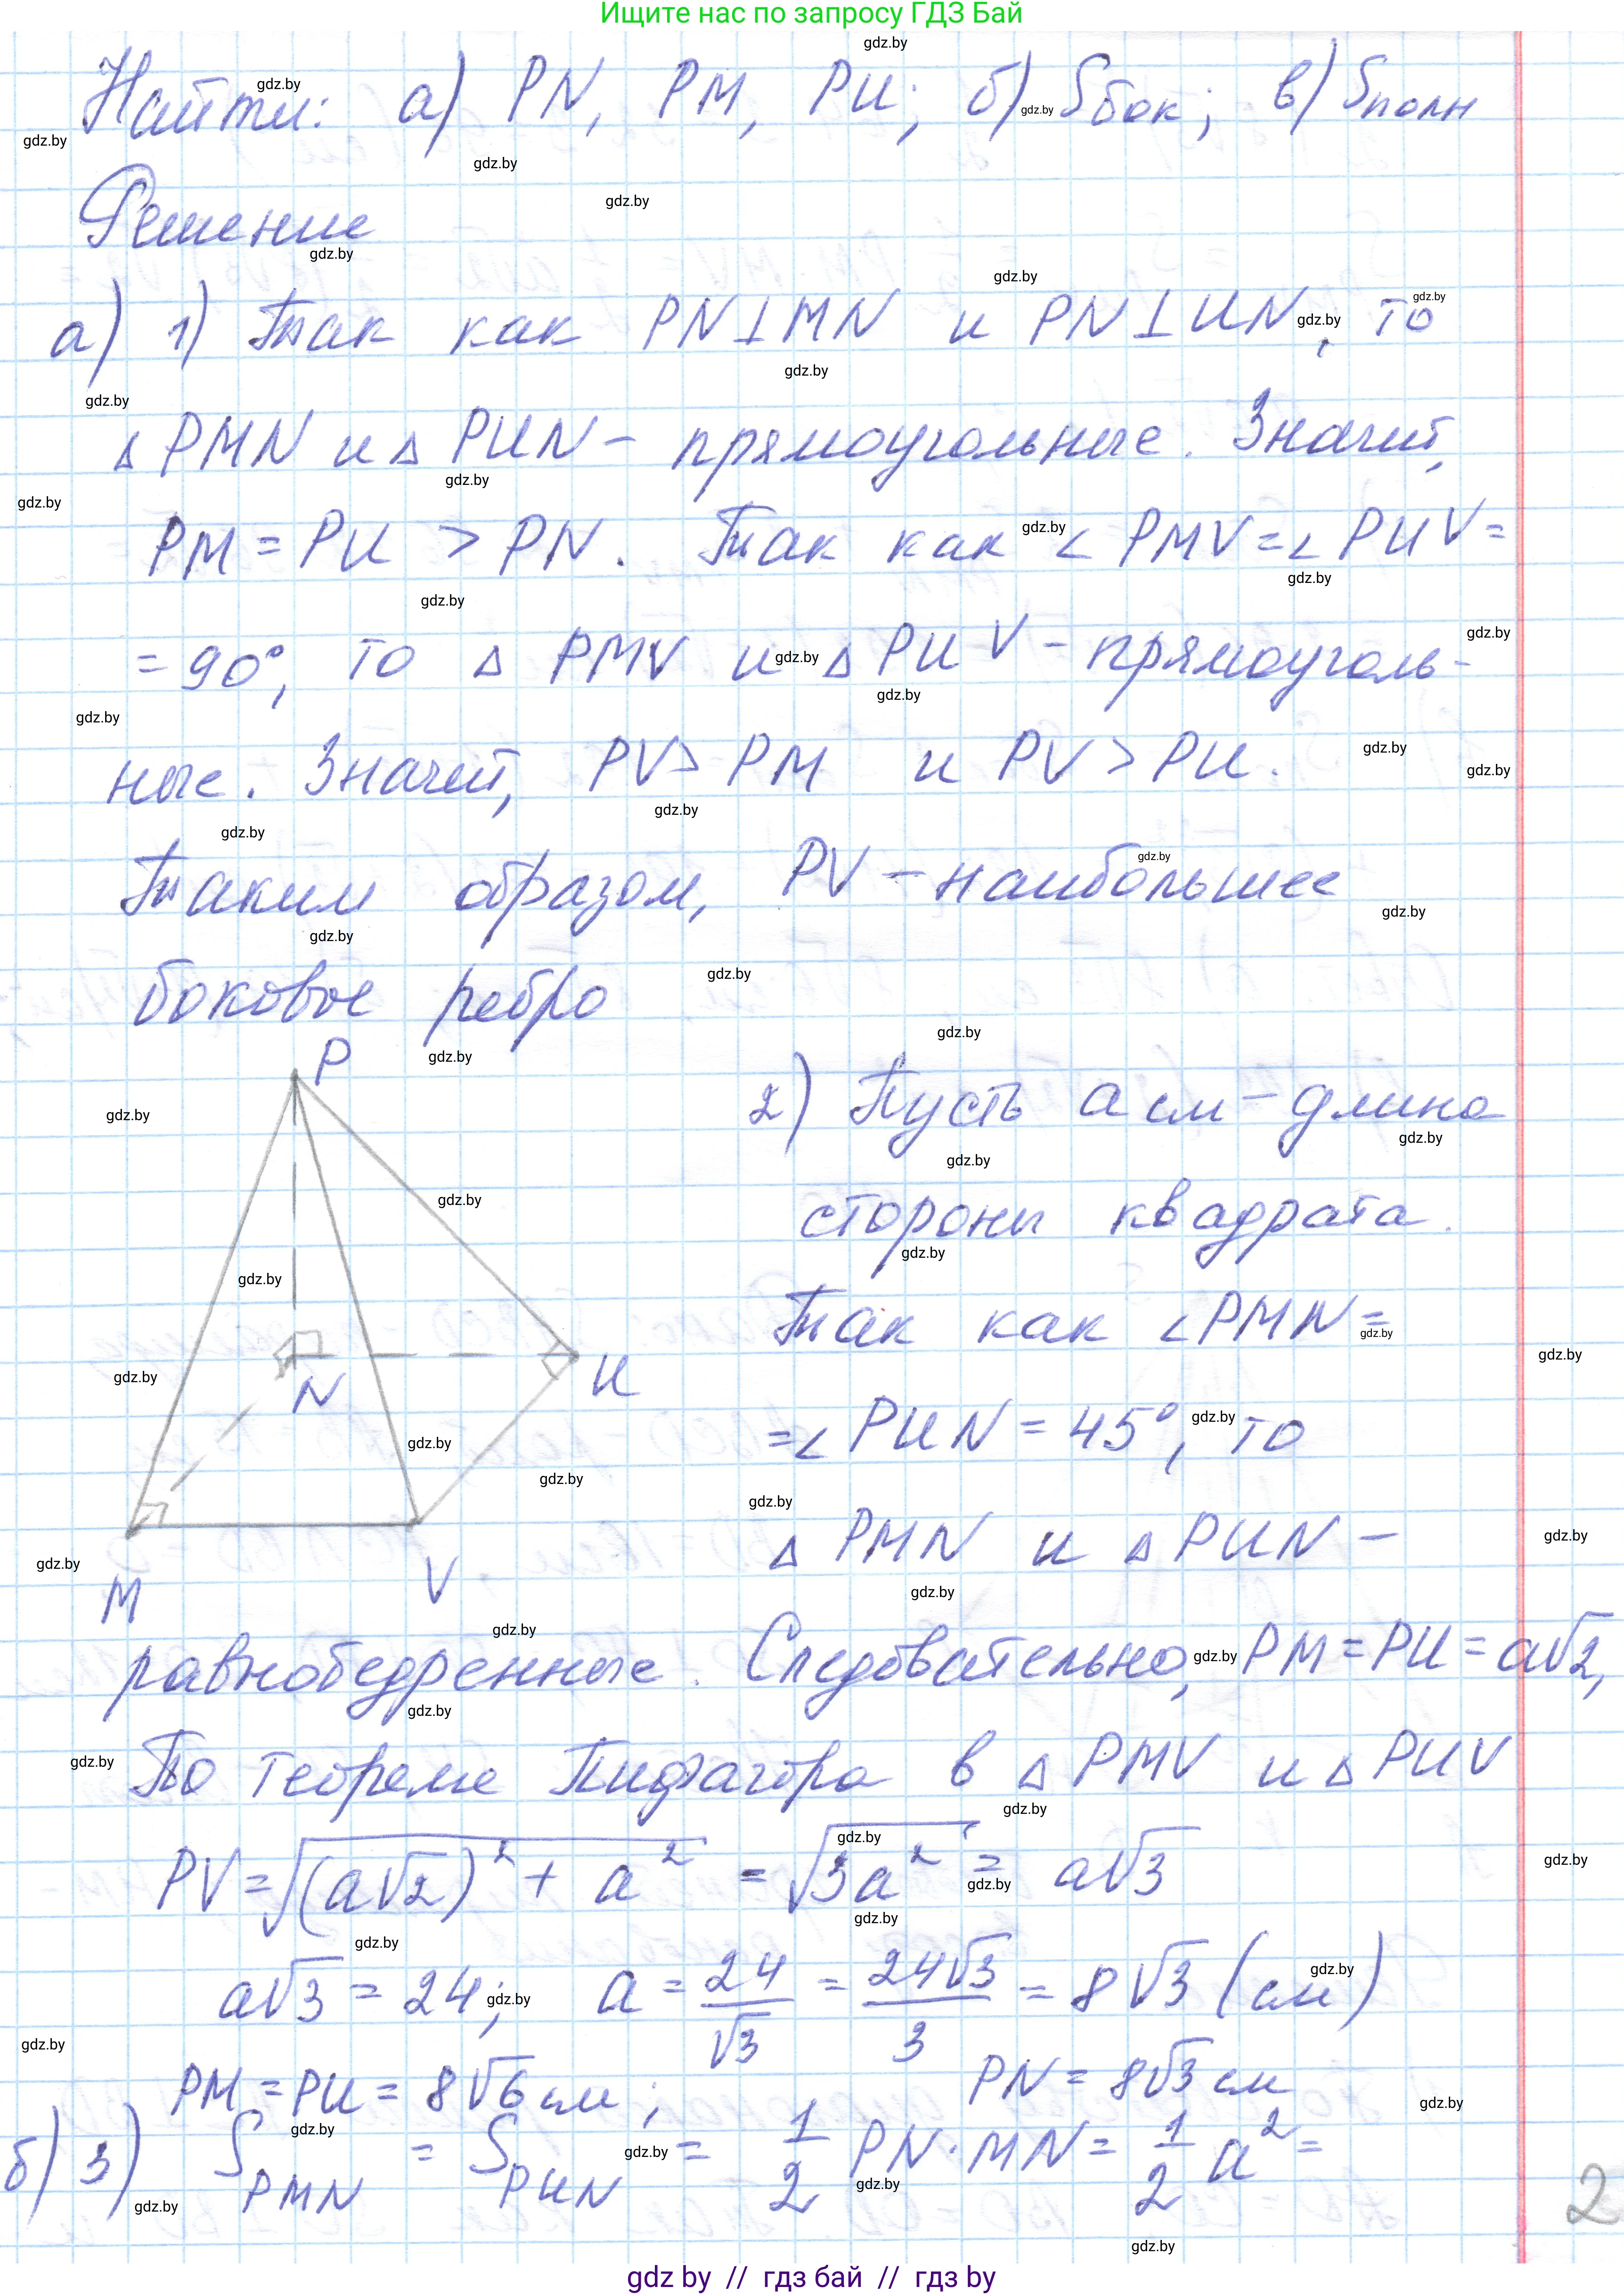 Ищите нас по запросу ГДЗ Бай
Найти: а) PN, PM, PU; б) Sбок; в) Sполн
Решение
а) 1) Так как PN⊥MN и PN⊥UN, то
△PMN и △PUN - прямоугольные. Значит,
PM = PU > PN. Так как ∠PMV = ∠PUV =
= 90°, то △ PMV и △ PUV - прямоуголь-
ные. Значит, PV > PM и PV > PU.
Таким образом, PV - наибольшее
боковое ребро
P
N
U
M
V
2) Пусть a см - длина
стороны квадрата.
Так как ∠PMN =
= ∠PUN = 45°, то
△ PMN и △ PUN -
равнобедренные. Следовательно, PM = PU = a√2,
По теореме Пифагора в △ PMV и △ PUV
PV = √((a√2)² + a²) = √(3a²) = a√3
a√3 = 24; a = 24/√3 = 24√3/3 = 8√3 (см)
PM = PU = 8√6 см; PN = 8√3 см
б) 3) S PMN = S PUN = 1/2 PN · MN = 1/2 a² =
2
gdz by // гдз бай // гдз by
gdz.by